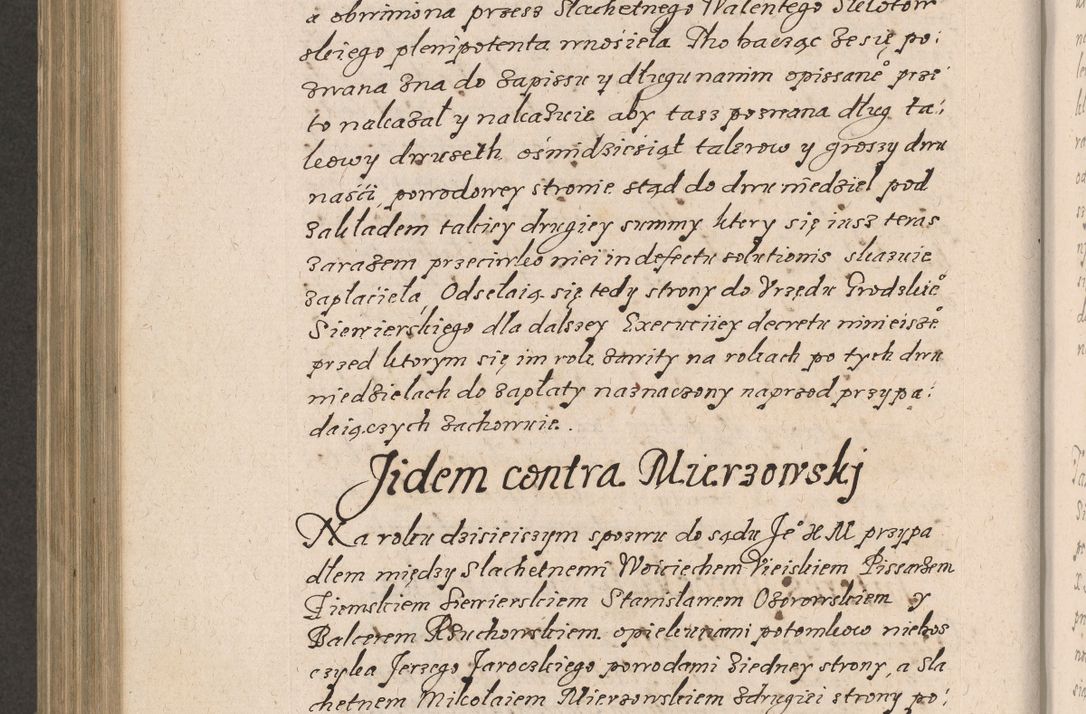 a obwiniona przesz Slachetnego Walentego
skiego plenipotenta wnosieła Tho bacząc że się po:
zwana zna do zapissu y długu nanim opissane° prze
to nakazał y nakazuie aby tasz pozwana dług ta:
lerowy dwuseth ośmdziesiąt talerow y groszy dwu
naści powodowey stronie stąd do dwu niedziel pod
zakładem takiey drugiey summy ktery się iusz teras
zarazem przeciwko niei in defectu solutionis skazuie
zapłacieła Odsełaią się tedy strony do Vrzędu Grodzkie°
Siewierskiego dla dalszey Executiiey decretu ninieisze°
przed ktorym się im rok zawity na rokach po tych dwu
niedzielach do zapłaty naznaczony naprzod przypa:
daiączych zachowuie.
Jidem contra Mierzowskj
Na roku dzisieiszym spozwu do sądu Je° X M przypa
dłem między Slachetnemi Woiciechem Vieiskiem Pissarzem
Ziemskiem Siewierskiem Stanisławem Ożorowskiem y
Balcerem Rzuchowskiem opiekunami potomkow niebos
czyka Jerzego Jaroczkiego powodami ziedney strony, a Sla
chetnem Mikołaiem Mierzowskiem zdrugiei strony po: